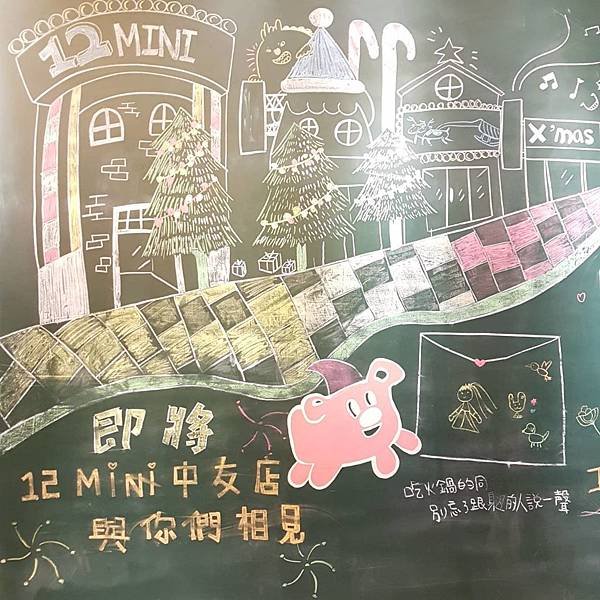 12 MINI
X'mas
即將
12 MiNi 中友店
與你們相見
吃火鍋的同
別忘了跟 人說一聲